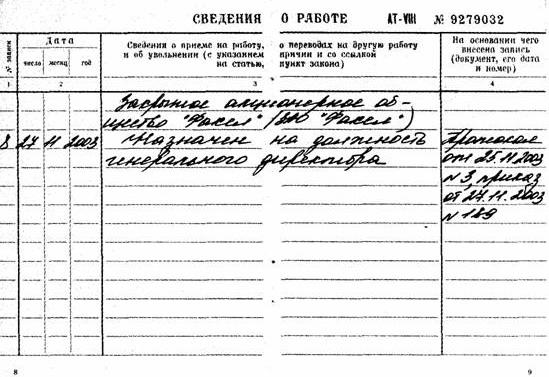 СВЕДЕНИЯ О РАБОТЕ АТ-VIII № 9279032
№ записи
Дата
число месяц год
Сведения о приеме на работу, о переводах на другую работу
и об увольнении (с указанием причин и со ссылкой
на статью, пункт закона)
На основании чего
внесена запись
(документ, его дата
и номер)
1 2 3 4
Закрытое акционерное об-
щество "Факел" (ЗАО "Факел")
8 27 11 2003 Назначен на должность
генерального директора
Протокол
от 25.11.2003
№ 3, приказ
от 27.11.2003
№ 189
8 9